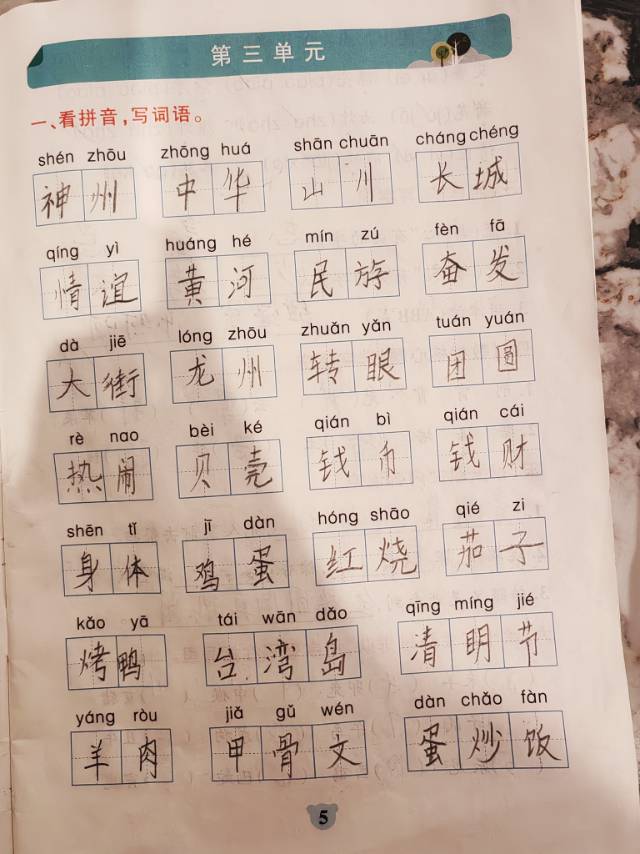 第三单元
一、看拼音，写词语。
shén zhōu zhōng huá shān chuān cháng chéng
神州 中华 山川 长城
qíng yì huáng hé mín zú fèn fā
情谊 黄河 民族 奋发
dà jiē lóng zhōu zhuǎn yǎn tuán yuán
大街 龙州 转眼 团圆
rè nao bèi ké qián bì qián cái
热闹 贝壳 钱币 钱财
shēn tǐ jī dàn hóng shāo qié zi
身体 鸡蛋 红烧 茄子
kǎo yā tái wān dǎo qīng míng jié
烤鸭 台湾岛 清明节
yáng ròu jiǎ gǔ wén dàn chǎo fàn
羊肉 甲骨文 蛋炒饭
5